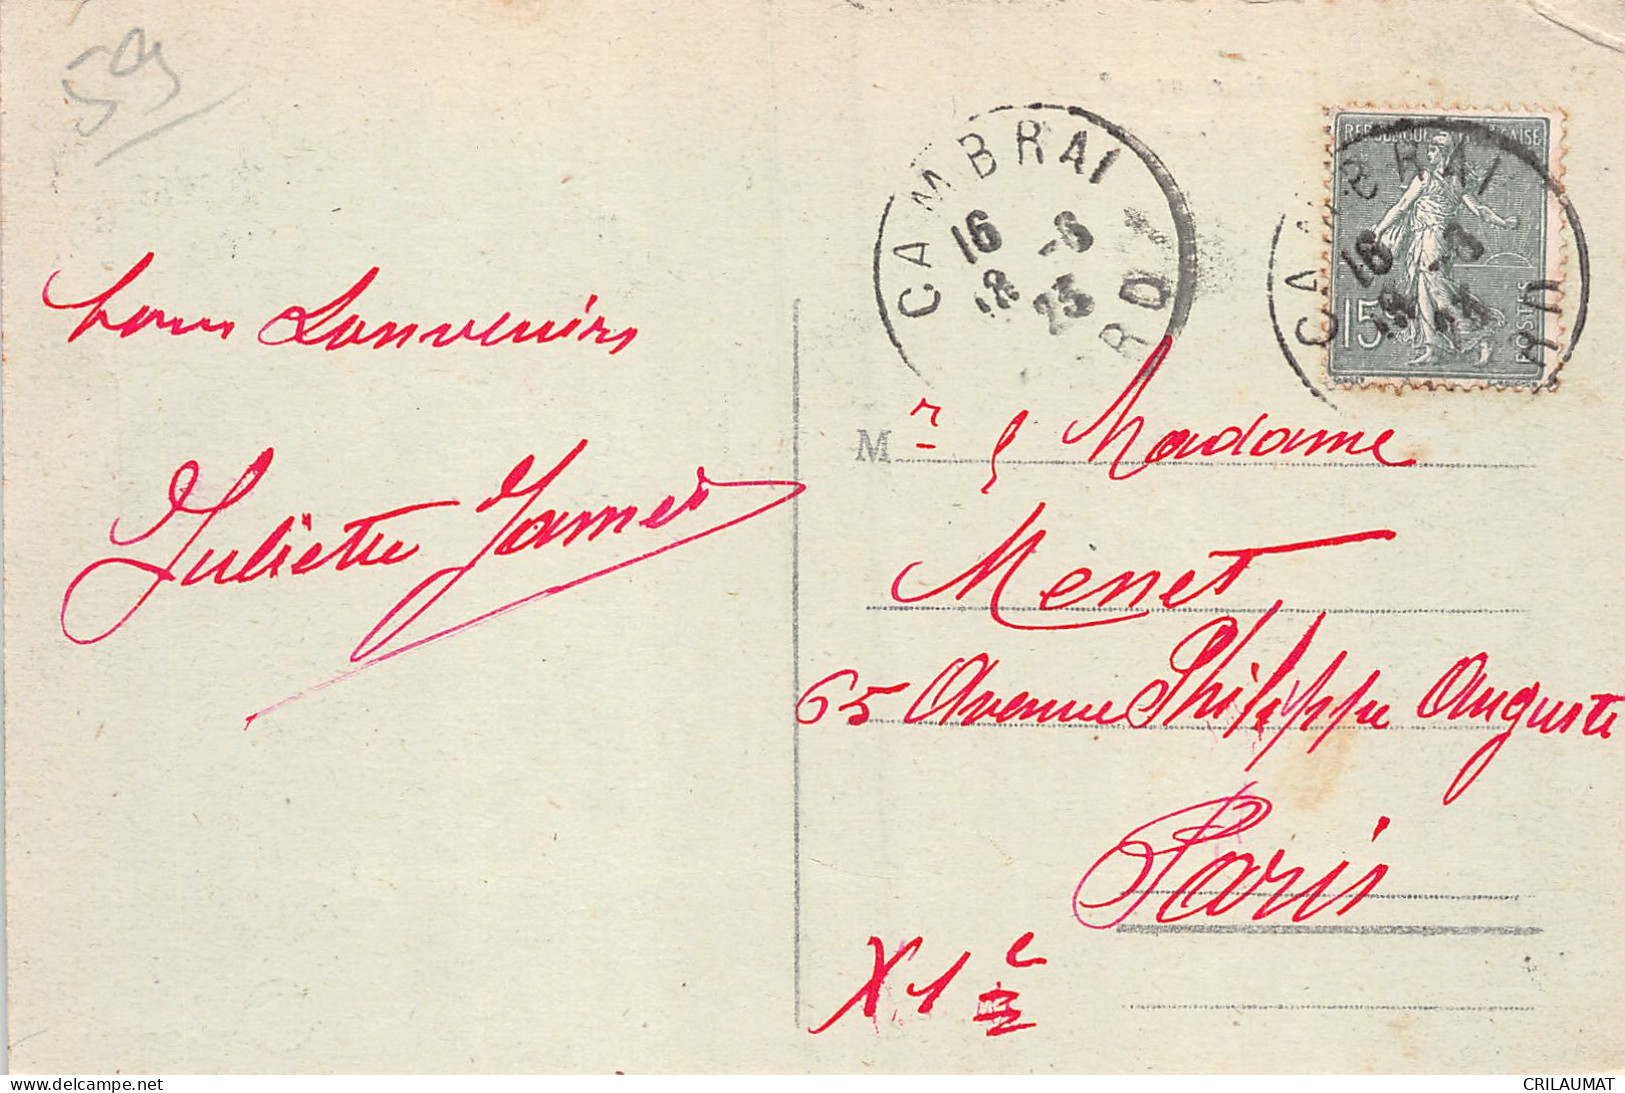 59
bons Souvenirs
Juliette James
CAMBRAI
16 -6
18 23
RD
REPUBLIQUE FRANÇAISE
15
POSTES
CAMBRAI
16 -6
18 23
RD
Mr & Madame
Menet
65 Avenue Philippe Auguste
Paris
XIe
delcampe.net
CRILAUMAT